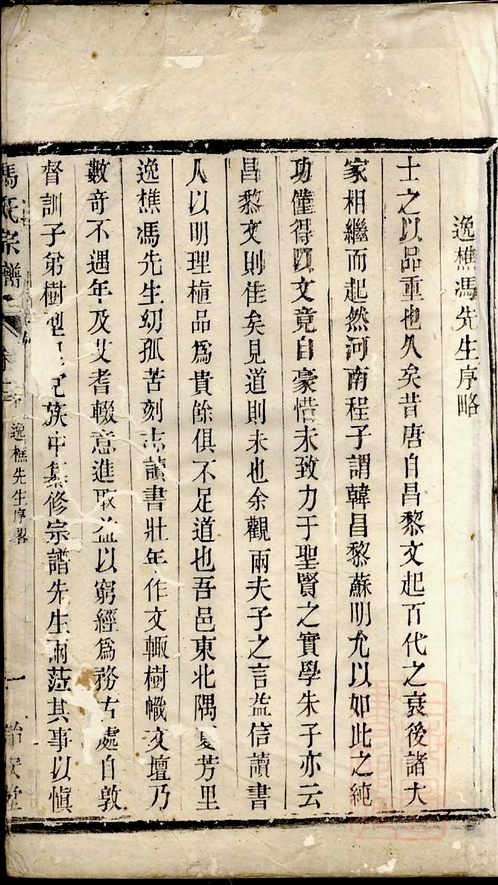 逸樵馮先生序略
士之以品重也久矣昔唐自昌黎文起百代之衰後諸大
家相繼而起然河南程子謂韓昌黎蘇明允以如此之純
功僅得以文竟自豪惜未致力于聖賢之實學朱子亦云
昌黎文則佳矣見道則未也余觀兩夫子之言益信讀書
人以明理植品為貴餘俱不足道也吾邑東北隅夏芳里
逸樵馮先生幼孤苦刻志讀書壯年作文輙樹幟文壇乃
數奇不遇年及艾耆輟意進取益以窮經為務古處自敦
督訓子弟樹型 族中纂修宗譜先生兩蒞其事以慎
馮氏宗譜 卷 逸樵先生序畧 一 堂